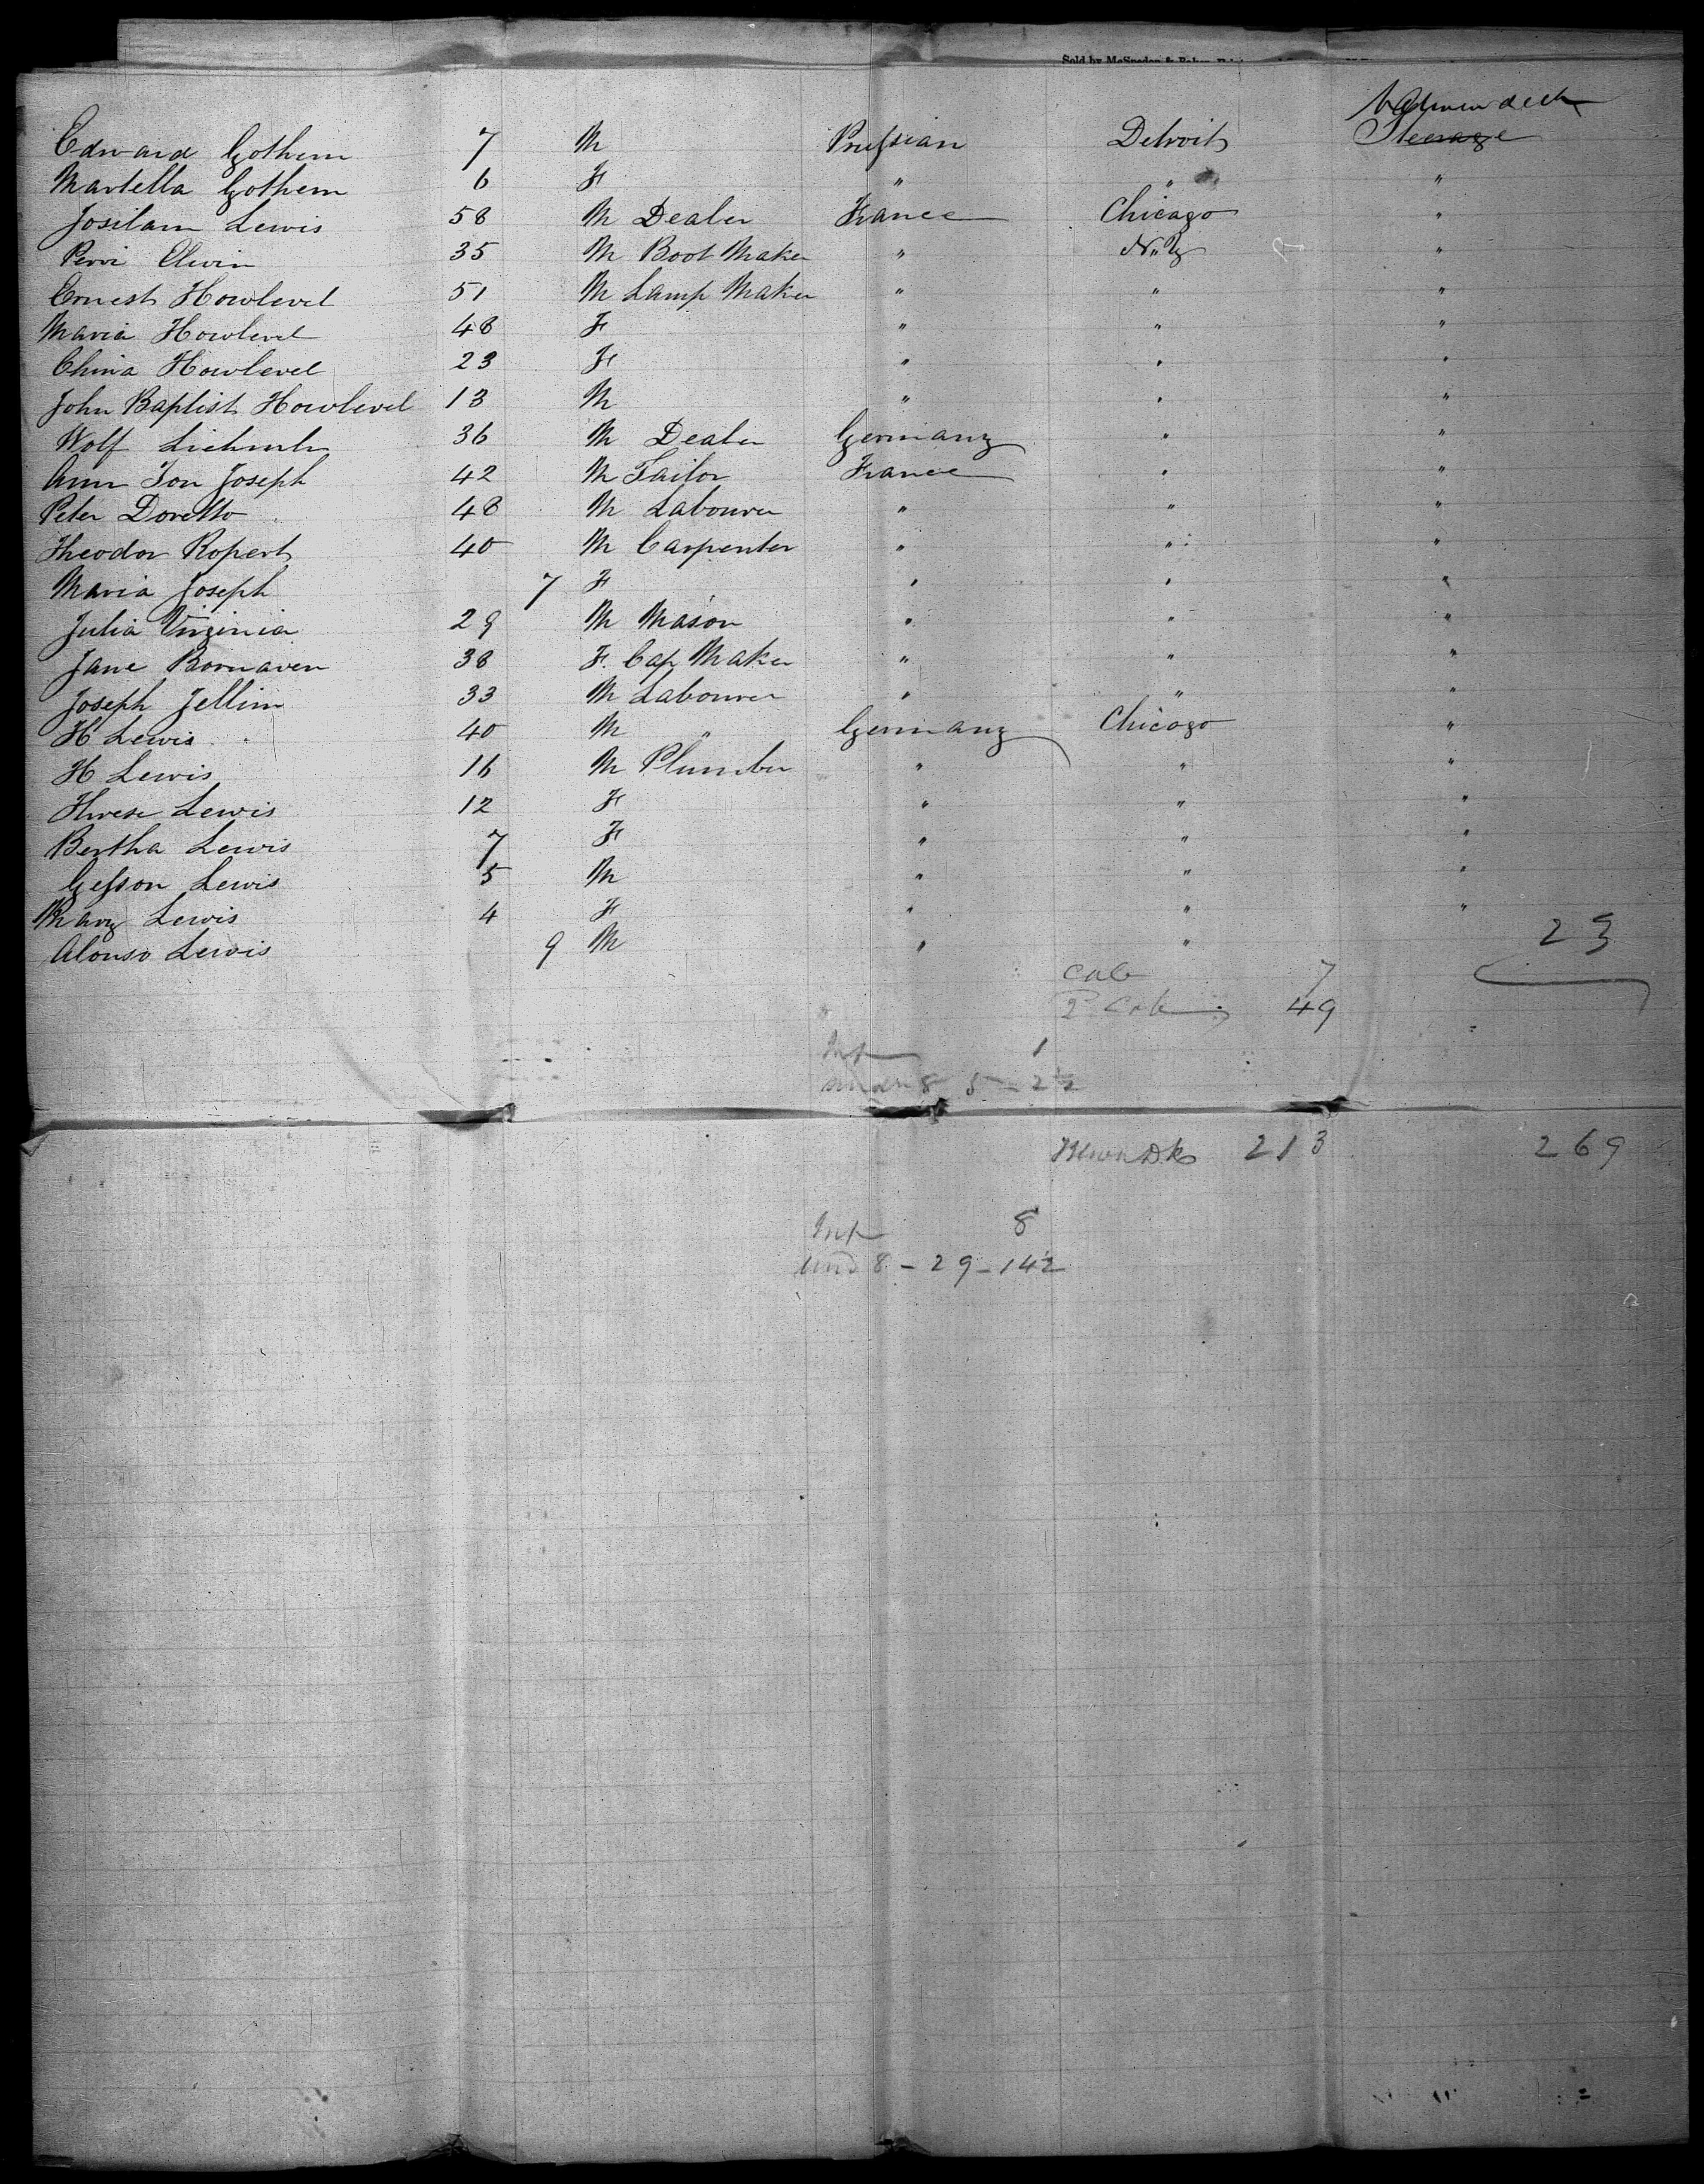 Sold by McSpedon & Baker
Between deck
Edward Gothem 7 M Prussian Detroit Steerage
Martella Gothem 6 F " " "
Josilam Lewis 58 M Dealer France Chicago "
Pervi Elwin 35 M Boot Maker " N. Y "
Ernest Howlevel 51 M Lamp Maker " " "
Maria Howlevel 48 F " " "
China Howlevel 23 F " " "
John Baptist Howlevel 13 M " " "
Wolf 36 M Dealer Germany " "
Ann Ton Joseph 42 M Tailor France " "
Peter Doretto 48 M Labourer " " "
Theodor Ropert 40 M Carpenter " " "
Maria Joseph 7 F " " "
Julia Virginia 29 M Mason " " "
Jane Bornaven 38 F. Cap Maker " " "
Joseph Jellim 33 M Labourer " " "
H Lewis 40 M " Germany Chicago "
H Lewis 16 M Plumber " " "
Hwese Lewis 12 F " " "
Bertha Lewis 7 F " " "
Gesson Lewis 5 M " " "
Mary Lewis 4 F " " "
Alonso Lewis 9 M " " 23
Cab 7
2d Cab 49
Inf 1
under 8 5 - 2½
Betwn Dk 213 269
Inf 8
und 8 - 29 - 14½